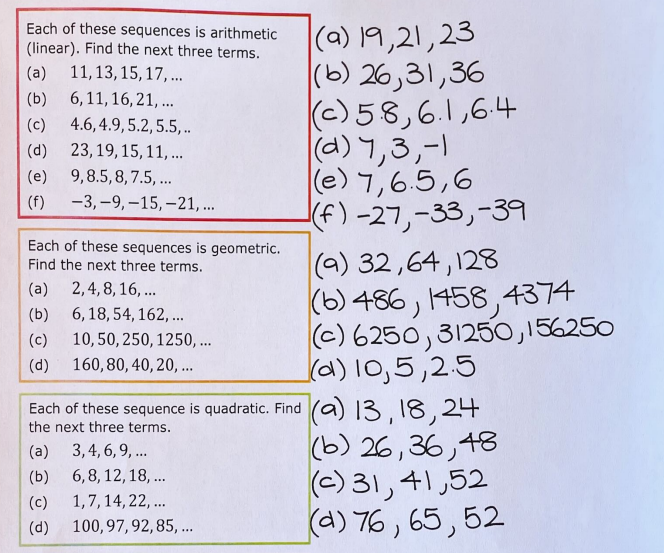 Each of these sequences is arithmetic
(linear). Find the next three terms.
(a) 11, 13, 15, 17, ...
(b) 6, 11, 16, 21, ...
(c) 4.6, 4.9, 5.2, 5.5, ..
(d) 23, 19, 15, 11, ...
(e) 9, 8.5, 8, 7.5, ...
(f) −3, −9, −15, −21, ...
(a) 19, 21, 23
(b) 26, 31, 36
(c) 5.8, 6.1, 6.4
(d) 7, 3, -1
(e) 7, 6.5, 6
(f) -27, -33, -39
Each of these sequences is geometric.
Find the next three terms.
(a) 2, 4, 8, 16, ...
(b) 6, 18, 54, 162, ...
(c) 10, 50, 250, 1250, ...
(d) 160, 80, 40, 20, ...
(a) 32, 64, 128
(b) 486, 1458, 4374
(c) 6250, 31250, 156250
(d) 10, 5, 2.5
Each of these sequence is quadratic. Find
the next three terms.
(a) 3, 4, 6, 9, ...
(b) 6, 8, 12, 18, ...
(c) 1, 7, 14, 22, ...
(d) 100, 97, 92, 85, ...
(a) 13, 18, 24
(b) 26, 36, 48
(c) 31, 41, 52
(d) 76, 65, 52